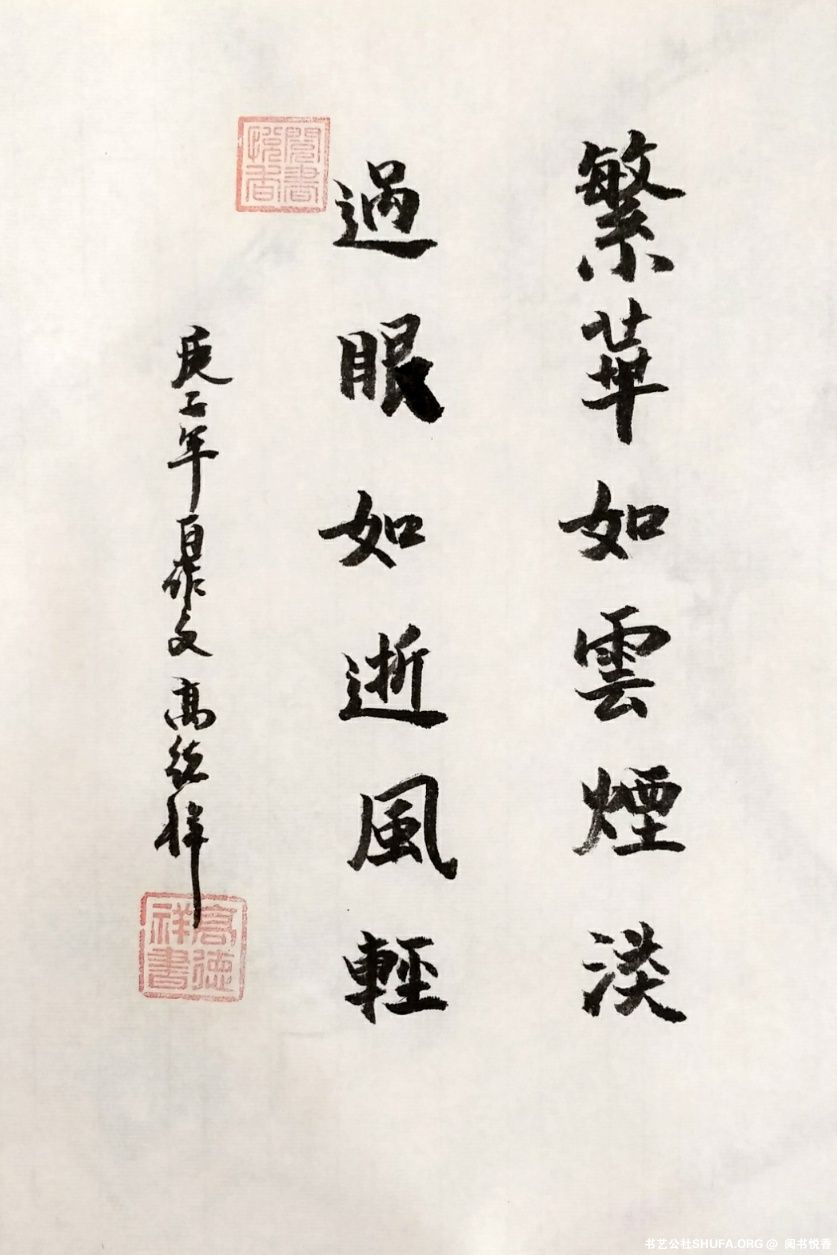 繁華如雲煙淡
過眼如逝風輕
庚子年自作文高德祥
閱書悅香
高德祥書
书艺公社SHUFA.ORG @ 阅书悦香